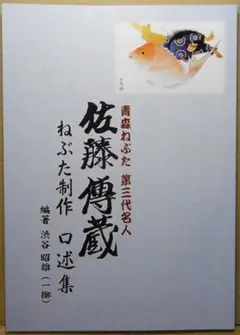 青森ねぶた 第三代名人
佐藤傳蔵
ねぶた制作 口述集
編著 渋谷昭雄(一擲)